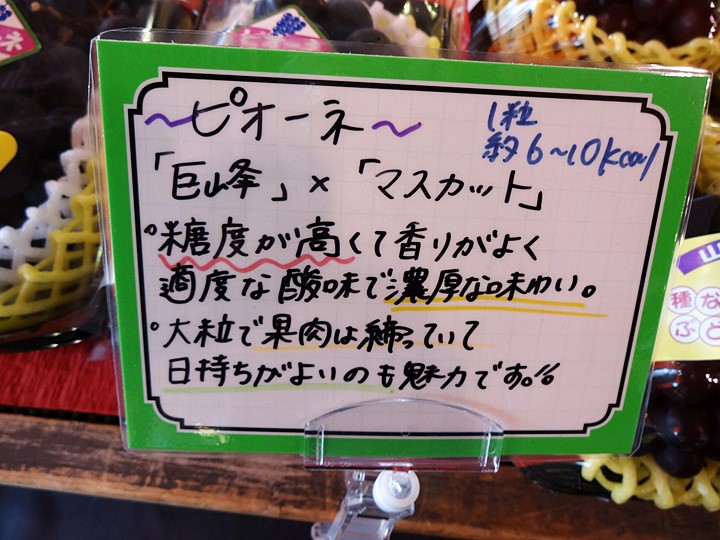 ~ピオーネ~
1粒
約6~10kcal
「巨峰」×「マスカット」
°糖度が高くて香りがよく
適度な酸味で濃厚な味わい。
°大粒で果肉は締っていて
日持ちがよいのも魅力です。
ネ
山
種な
ぶど